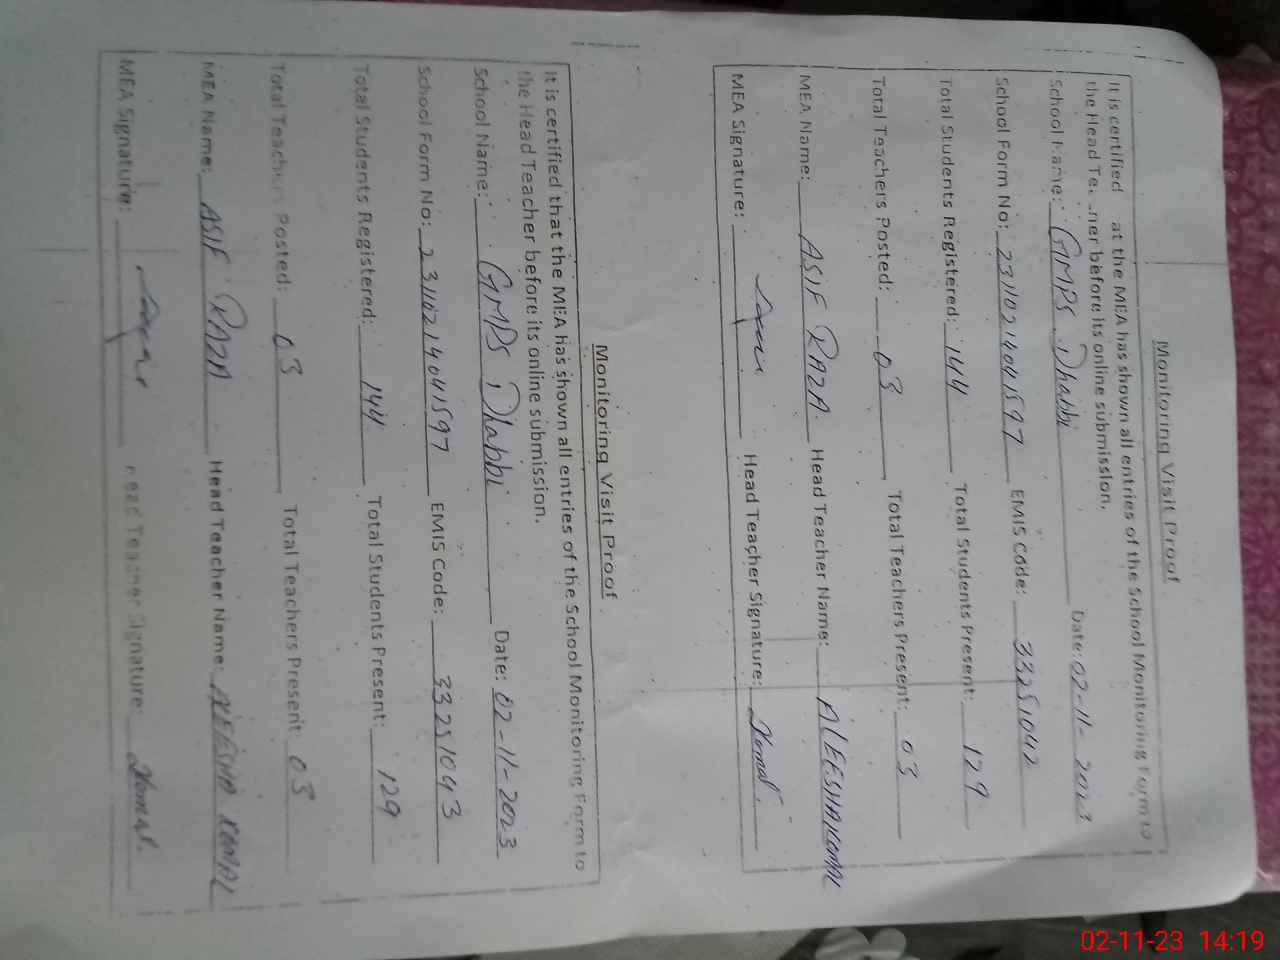 Monitoring Visit Proof
It is certified at the MEA has shown all entries of the School Monitoring Form to
the Head Te. .ner before its online submission.
School Name: GMPS Dhabbi Date: 02-11-2023
School Form No: 231102140401597 EMIS Code: 33251042
Total Students Registered: 144 Total Students Present: 129
Total Teachers Posted: 03 Total Teachers Present: 03
MEA Name: ASIF RAZA Head Teacher Name: ALEESHA KOMAL
MEA Signature: Head Teacher Signature: Komal.
Monitoring Visit Proof
It is certified that the MEA has shown all entries of the School Monitoring Form to
the Head Teacher before its online submission.
School Name: GMPS Dhabbi Date: 02-11-2023
School Form No: 231102140401597 EMIS Code: 33251043
Total Students Registered: 144 Total Students Present: 129
Total Teachers Posted: 03 Total Teachers Present: 03
MEA Name: ASIF RAZA Head Teacher Name: ALEESHA KOMAL
MEA Signature: Head Teacher Signature: Komal.
02-11-23 14:19